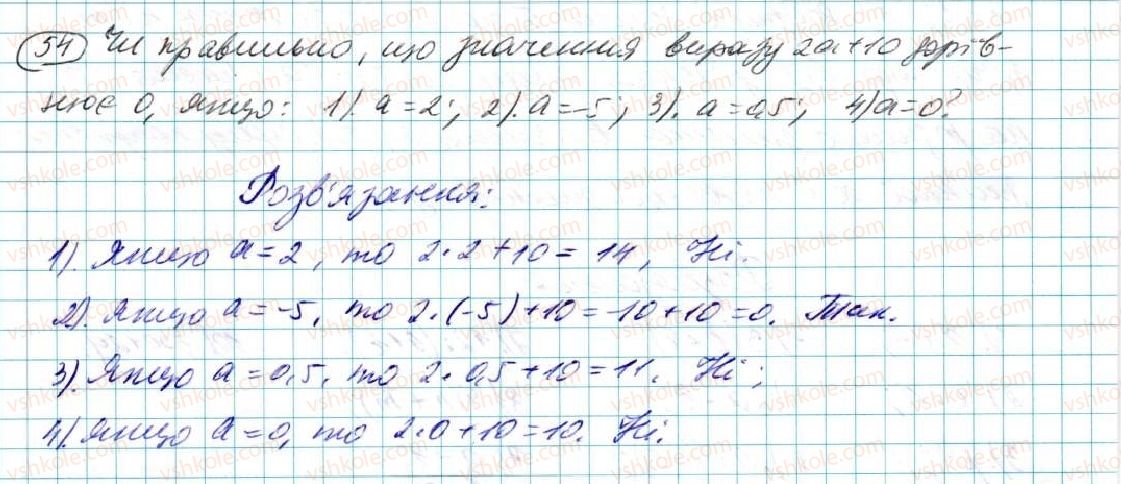 54 Чи правильно, що значення виразу 2a+10 дорів-
нює 0, якщо: 1). a=2; 2). a=-5; 3). a=0,5; 4) a=0?
Розв'язання:
1). Якщо a=2, то 2·2+10=14, Ні.
2). Якщо a=-5, то 2·(-5)+10=-10+10=0. Так.
3). Якщо a=0,5. то 2·0,5+10=11. Ні;
4). Якщо a=0, то 2·0+10=10. Ні.
vshkole.com